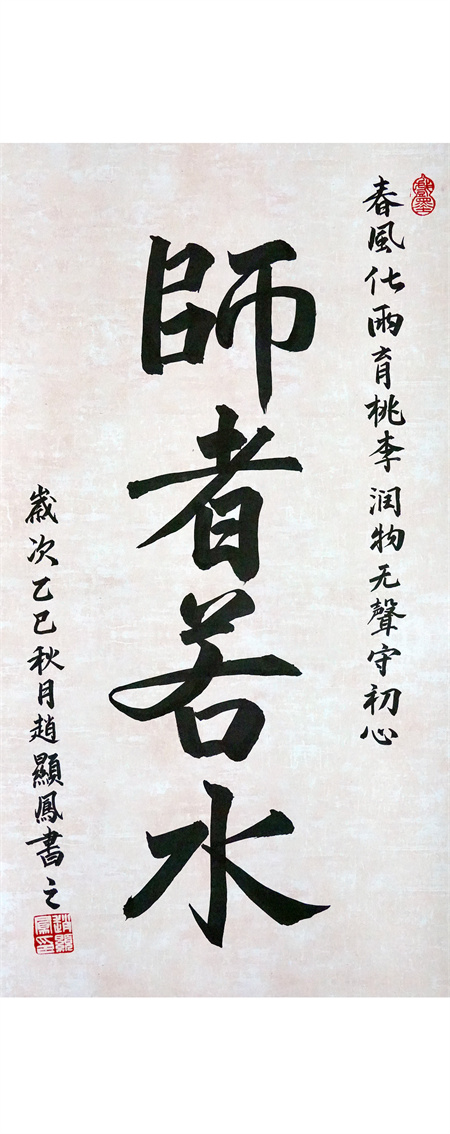 春風化雨育桃李润物无聲守初心
師者若水
歲次乙巳秋月趙顯鳳書之
趙顯鳳印